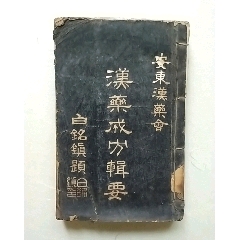 安東漢藥會
漢藥成分輯要
白銘鎮題